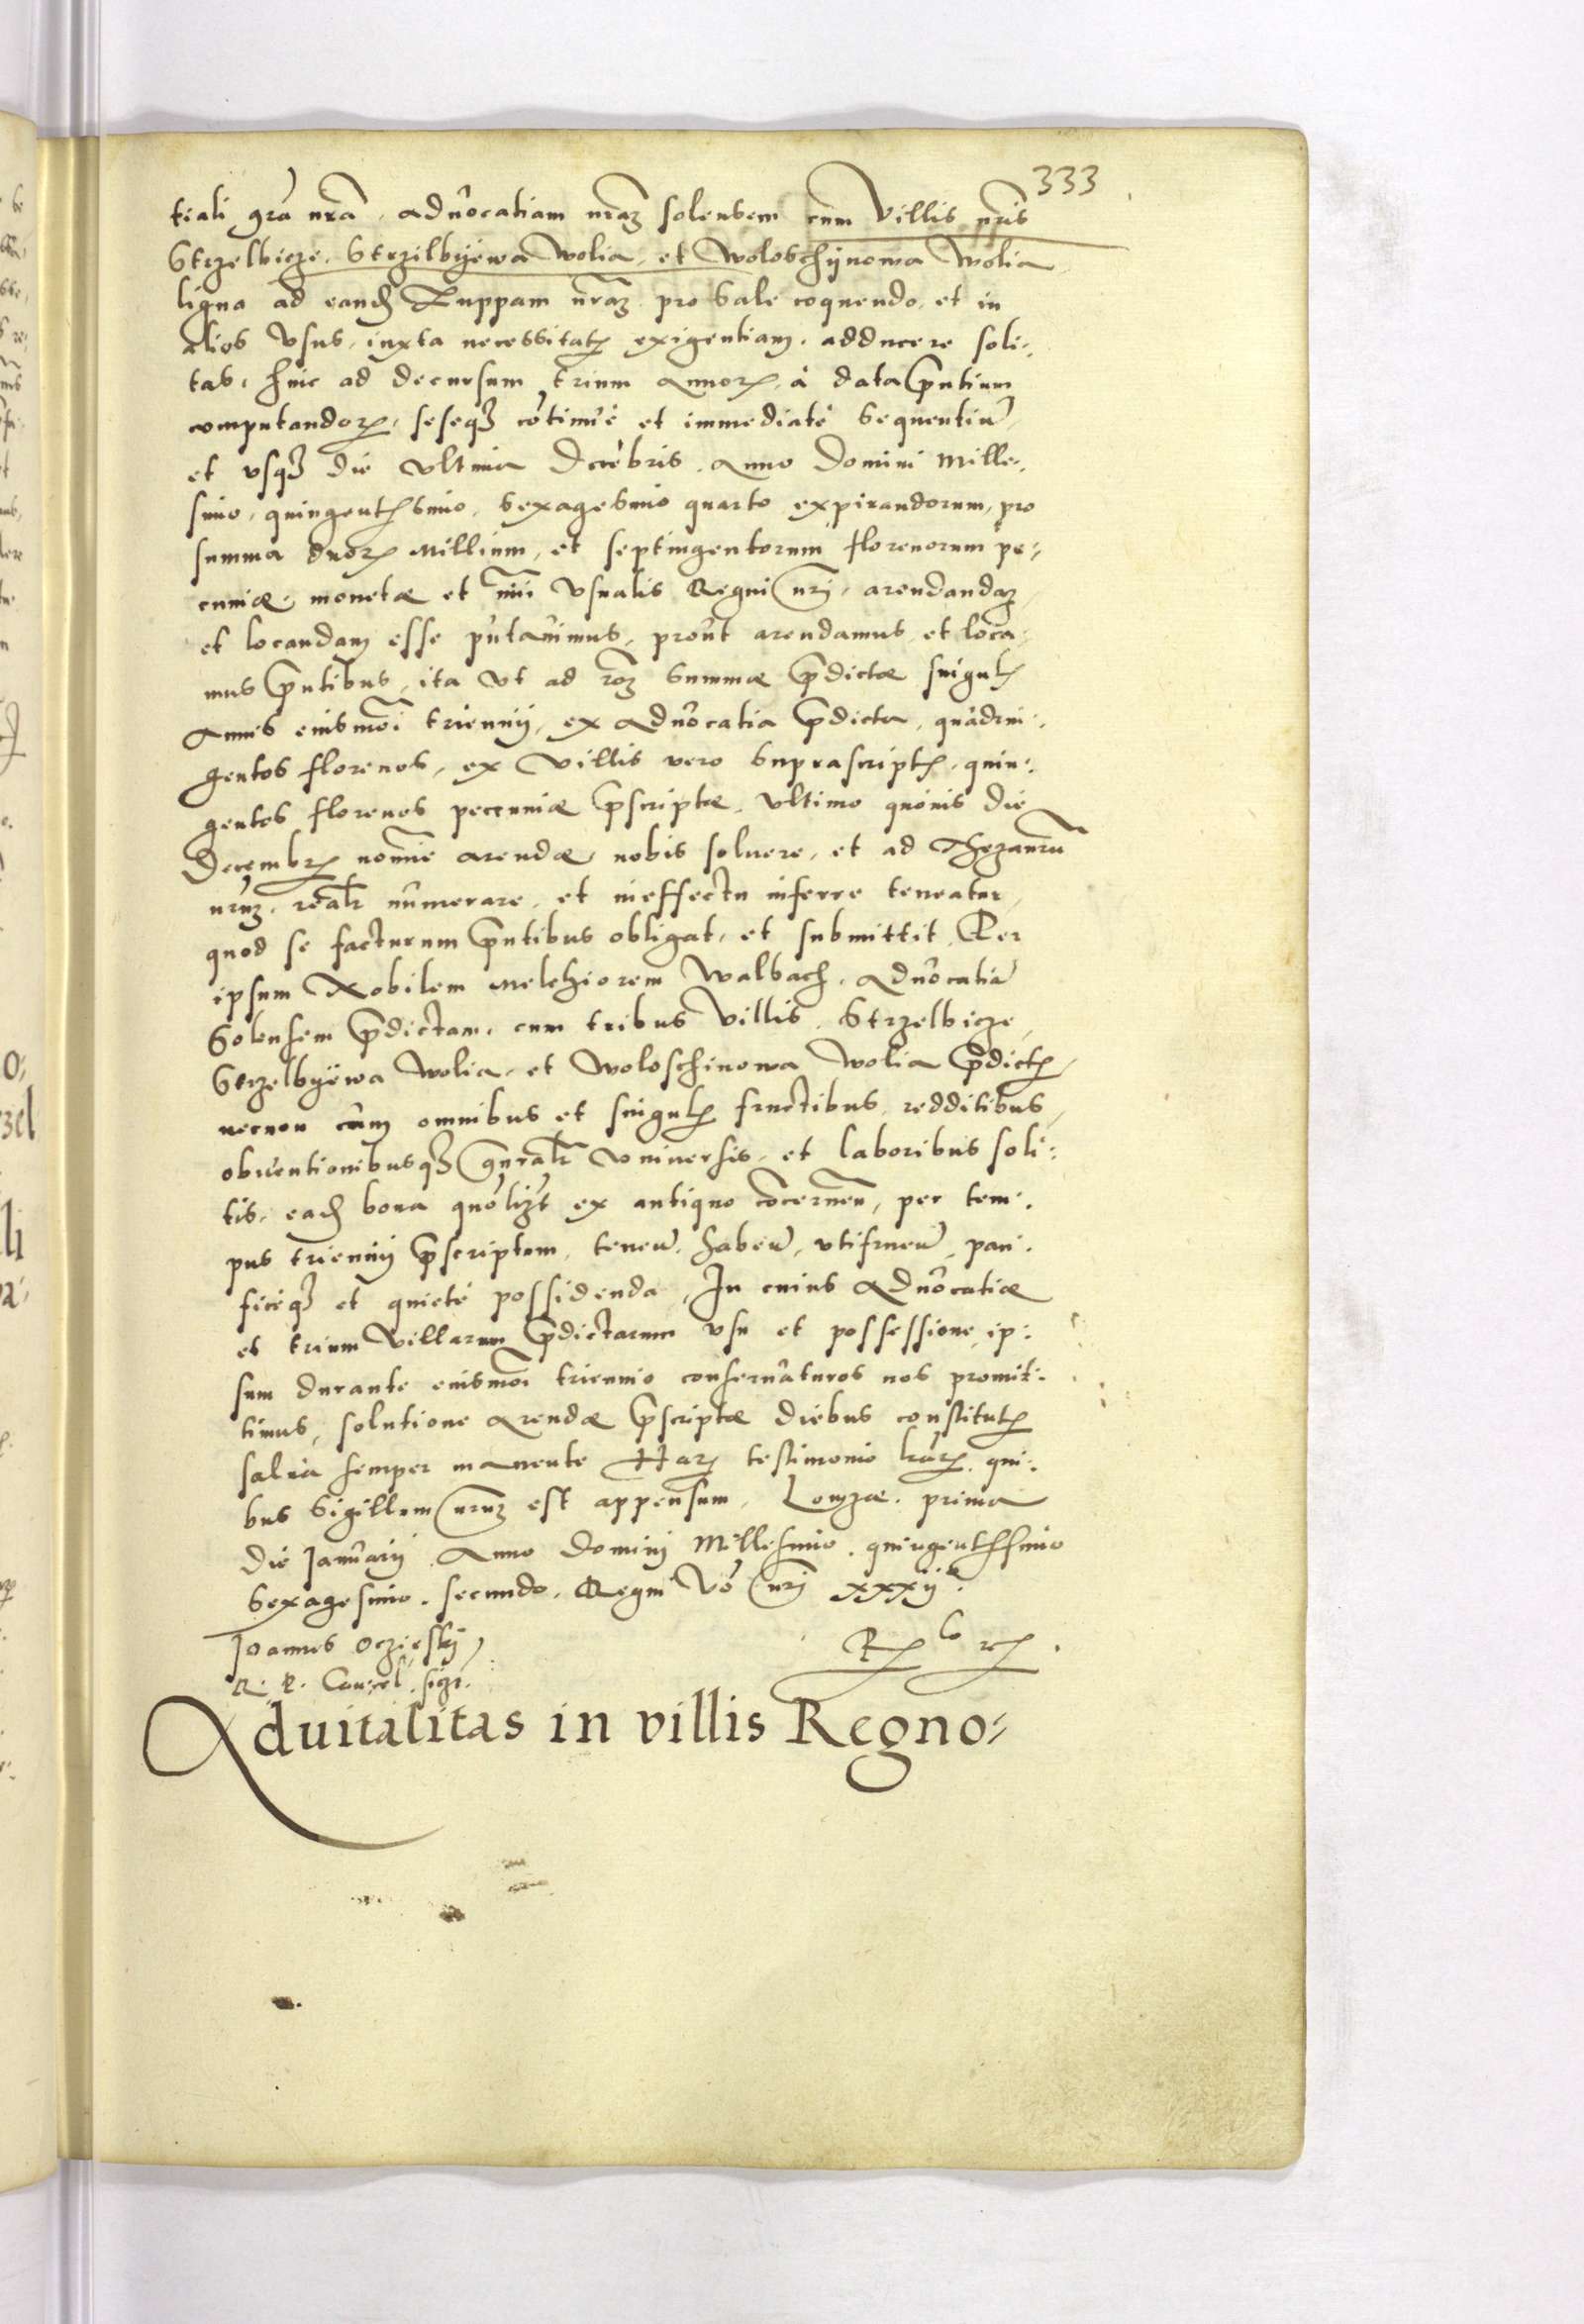 333
tiali gra nra, aduocatiam nram solensem cum villis nris
Strzelbicze, Strzilbyewa Wolia, et Woloschynowa Wolia
ligna ad eand Zuppam nram pro sale coquendo, et in
alios vsus, iuxta necessitat exigentiam, adducere soli:
tas, hinc ad decursum trium annor, à data pntium
computandor, seseq cõtinue et immediate sequentiũ,
et vsq die vltima Decẽbris, Anno Domini Mille:
simo, quingentesimo, sexagesimo quarto expirandorum, pro
summa duor Millium, et septingentorum florenorum pe:
cuniæ, monetæ et nũi vsualis Regni nri, arendandam
et locandam esse putauimus, prout arendamus et loca:
mus pntibus, ita vt ad rõm summæ pdictæ singul
annis eiusmõi triennij, ex Aduocatia pdicta, quadrin:
gentos florenos, ex villis vero suprascript, quin:
gentos florenos pecuniæ pscriptæ, vltimo quouis die
Decembr nomine arendæ, nobis soluere, et ad Thezaurũ
nrum, realr numerare, et in effectu inferre teneatur,
quod se facturum pntibus obligat, et submittit, Per
ipsum Nobilem Melchiorem Walbach, Aduocatiã
Solensem pdictam, cum tribus villis, Strzelbicze,
Strzelbyewa Wolia, et Woloschinowa Wolia pdict,
necnon cum omnibus et singul fructibus, redditibus,
obuentionibusq gnralr vniuersis, et laboribus soli:
tis, ead bona quõlizt ex antiquo cõcernen, per tem:
pus triennij pscriptum, teneñ, habeñ, vtifrueñ, paci:
ficeq et quietè possidenda, In cuius Aduocatiæ
et trium Villarum pdictarum vsu et possessione, ip:
sum durante eiusmõi triennio conseruaturos nos promit:
timus, solutione arendæ pscriptæ diebus constitut
salua semper manente Har testimonio lrar, qui:
bus Sigillum nrum est appensum, Lomzæ, prima
die Januarij, Anno Domini Millesimo, quingentesimo
sexagesimo, secundo, Regni vo nri xxxij
Joannes Oczieski
R. P. Cancel. sszt.
Aduitalitas in villis Regno: